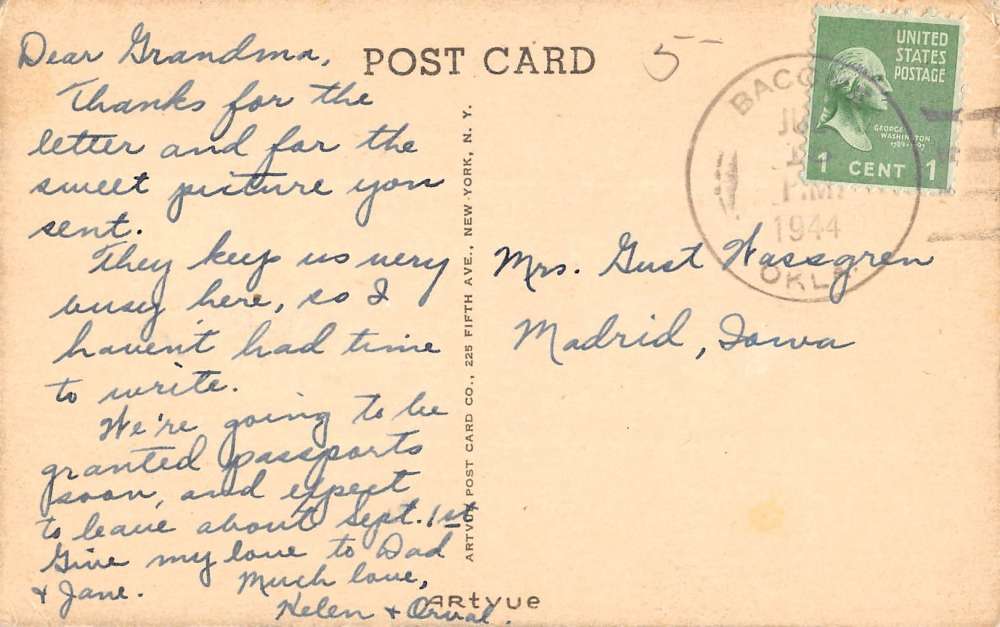 Dear Grandma,
Thanks for the
letter and for the
sweet picture you
sent.
They keep us very
busy here, so I
haven't had time
to write.
We're going to be
granted passports
soon, and expect
to leave about Sept. 1st
Give my love to Dad
& Jane.
Much love,
Helen & Orval.
POST CARD
ARTVUE POST CARD CO., 225 FIFTH AVE., NEW YORK, N. Y.
ARTVUE
5-
UNITED
STATES
POSTAGE
GEORGE
WASHINGTON
1 CENT 1
P.M.
1944
OKLA.
Mrs. Gust Wassgren
Madrid, Iowa